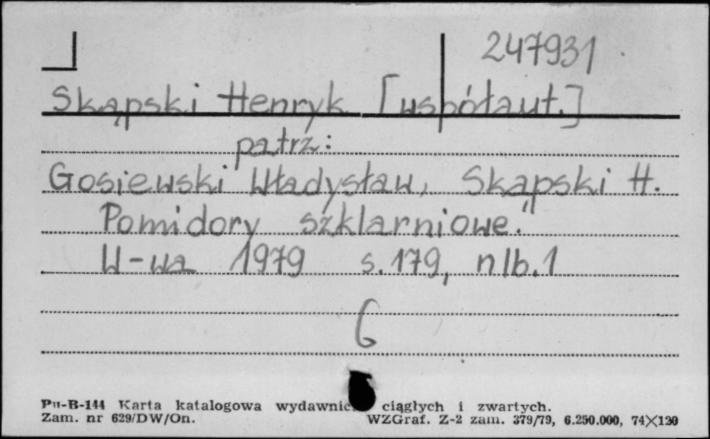 247931
Skąpski Henryk [współaut.]
patrz:
Gosiewski Władysław, Skąpski H.
Pomidory szklarniowe."
W-wa 1979 s. 179, nlb. 1
6
Pu-B-144 Karta katalogowa wydawnic ciągłych i zwartych.
Zam. nr 629/DW/On. WZGraf. Z-2 zam. 379/79, 6.250.000, 74×120